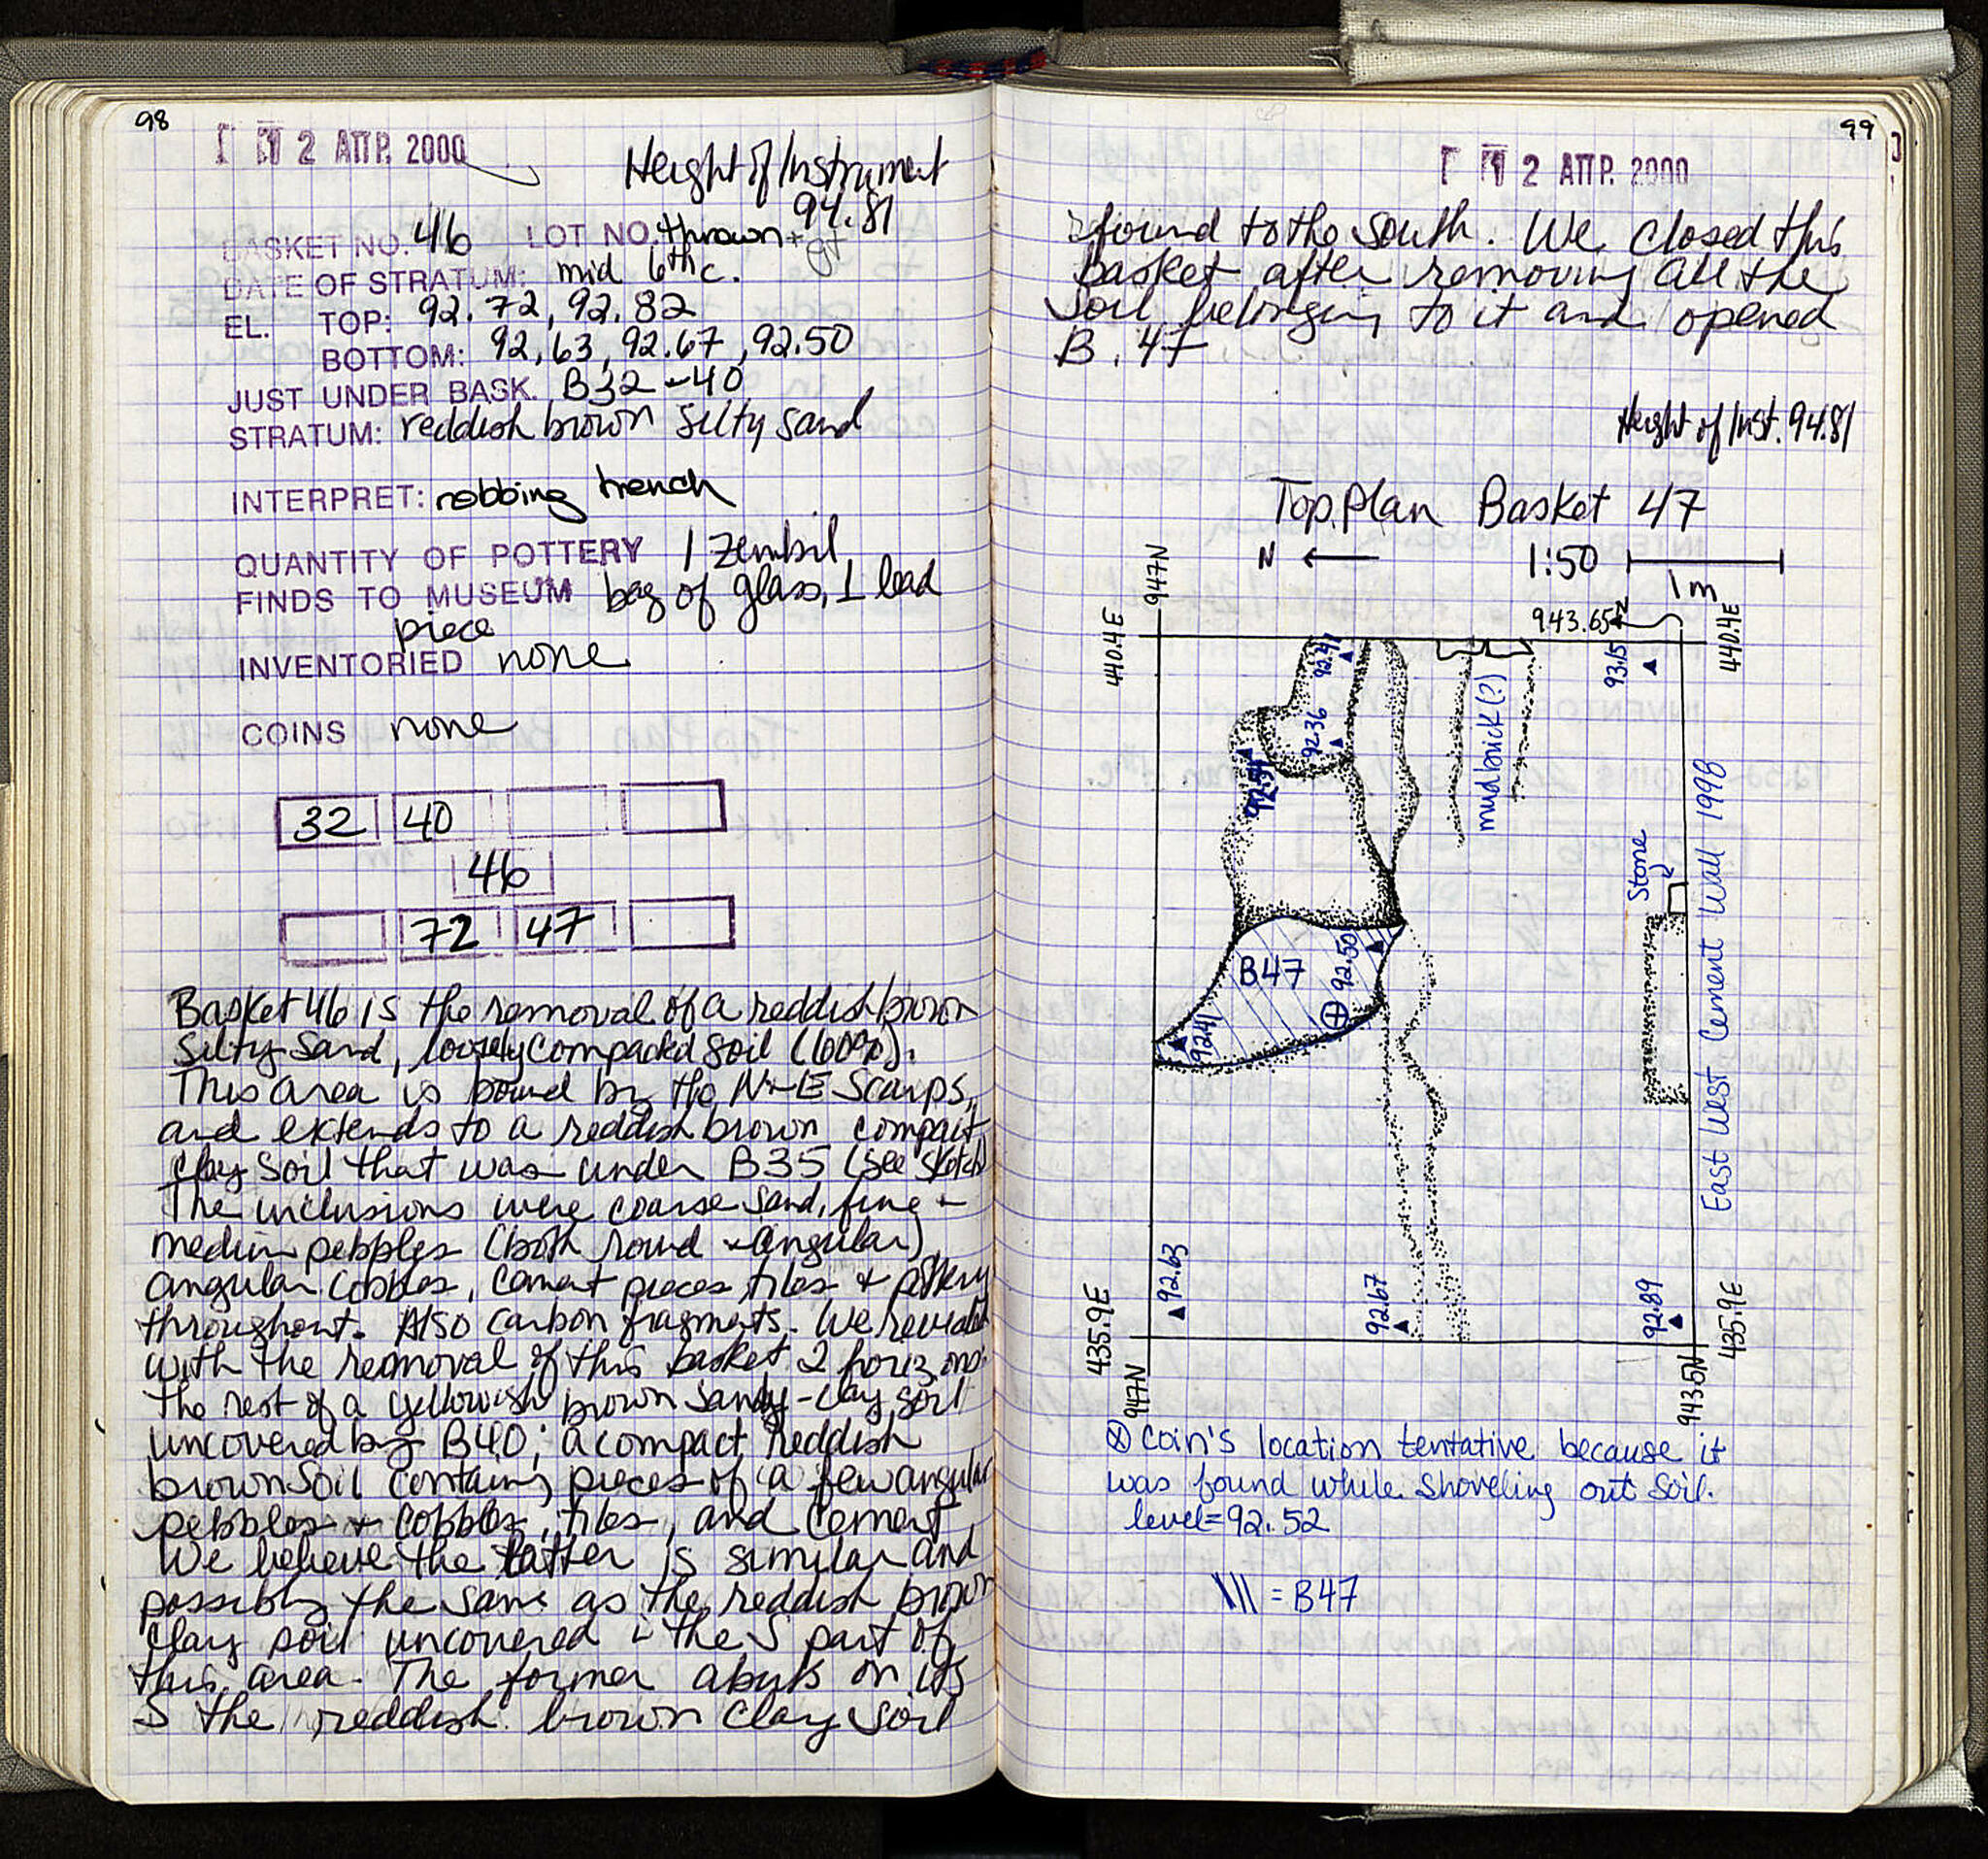 98
12 ΑΠΡ. 2000
Height of Instrument
94.81
BASKET NO. 46 LOT NO. thrown +
DATE OF STRATUM: mid 6th c.
EL. TOP: 92.72, 92.82
BOTTOM: 92,63, 92.67, 92.50
JUST UNDER BASK. B32-40
STRATUM: reddish brown silty sand
INTERPRET: robbing trench
QUANTITY OF POTTERY 1 zembil
FINDS TO MUSEUM bag of glass, 1 lead
piece
INVENTORIED none
COINS none
32 40
46
72 47
Basket 46 is the removal of a reddish brown
silty sand, loosely compacted soil (60%).
This area is bound by the N+E Scarps,
and extends to a reddish brown compact
clay soil that was under B35 (see sketch)
The inclusions were coarse sand, fine +
medium pebbles (both round + angular)
angular cobbles, cement pieces, tiles + pottery
throughout. Also carbon fragments. We revealed
with the removal of this basket 2 horizons:
the rest of a yellowish brown sandy-clay soil
uncovered by B40; a compact reddish
brown soil containing pieces of a few angular
pebbles + cobbles, tiles, and cement.
We believe the latter is similar and
possibly the same as the reddish brown
clay soil uncovered in the S part of
this area. The former abuts on its
S the reddish brown clay soil
99
12 ΑΠΡ. 2000
found to the south. We closed this
basket after removing all the
soil belonging to it and opened
B. 47
Height of Inst. 94.81
Top Plan Basket 47
N 1:50
1m
947N
943.65N
440.4E
440.4E
92.47
93.15
92.36
92.54
mudbrick(?)
Stone
East West Cement Wall 1998
B47
92.50
92.41
92.63
92.67
92.89
435.9E
435.9E
947N
943.5N
⊗ coin's location tentative because it
was found while shoveling out soil.
level=92.52
\\\ = B47